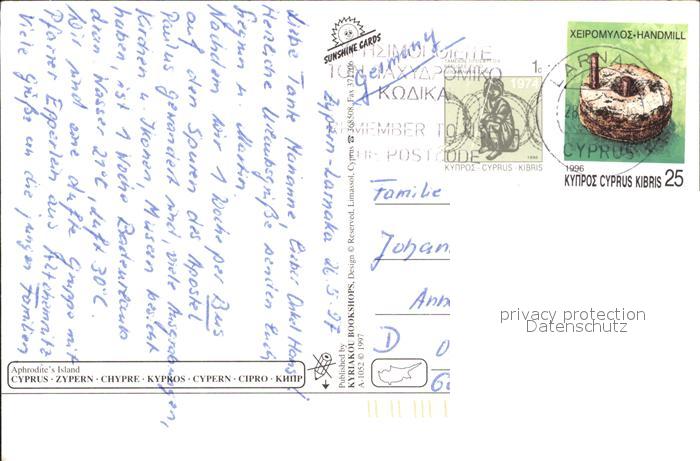 Zypern-Larnaka 26.5.97
Liebe Tante Marianne, lieber Onkel Hans!
Herzliche Urlaubsgrüße senden Euch
Regina u. Martin.
Nachdem wir 1 Woche per Bus
auf den Spuren des Apostel
Paulus gewandert sind, viele Ausgrabungen,
Kirchen u. Ikonen, Museen besucht
haben, ist 1 Woche Badeurlaub
dran Wasser 22°C, Luft 30°C.
Wir sind eine dufte Gruppe mit
Pfarrer Epperlein aus
Viele Grüße an die jungen Familien
Aphrodite's Island
CYPRUS · ZYPERN · CHYPRE · ΚΥΠΡΟΣ · CYPERN · CIPRO · КИПР
SUNSHINE CARDS
Published by
KYRIAKOU BOOKSHOPS, Design © Reserved, Limassol, Cyprus ☎ 368508, Fax
A-1052 © 1997
Germany
ΚΩΔΙΚΑ
THE POSTCODE
1c
1974
1996
ΚΥΠΡΟΣ - CYPRUS - KIBRIS
ΧΕΙΡΟΜΥΛΟΣ·HANDMILL
LARNACA
CYPRUS
1996
ΚΥΠΡΟΣ CYPRUS KIBRIS 25
Familie
Johan
Ann
D
privacy protection
Datenschutz